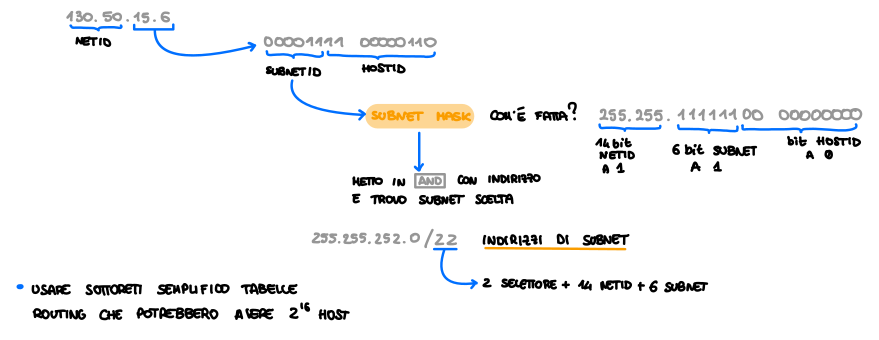 130.50.15.6
NETID
00001111 00000110
SUBNETID HOSTID
SUBNET MASK COM'È FATTA? 255.255.11111100 00000000
14 bit NETID A 1
6 bit SUBNET A 1
bit HOSTID A 0
METTO IN AND CON INDIRIZZO
E TROVO SUBNET SCELTA
255.255.252.0/22 INDIRIZZI DI SUBNET
2 SELETTORE + 14 NETID + 6 SUBNET
• USARE SOTTORETI SEMPLIFICO TABELLE
ROUTING CHE POTREBBERO AVERE 2^16 HOST